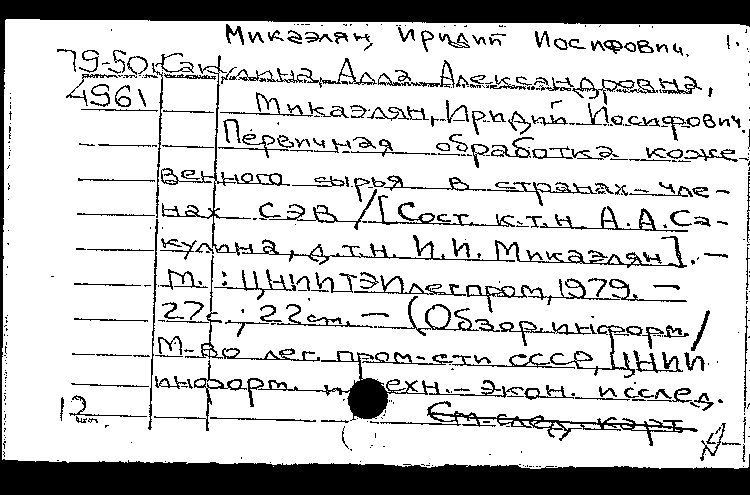 Микаэлян, Иридий Иосифович. 1.
79-50 Сакулина, Алла Александровна,
4961 Микаэлян, Иридий Иосифович.
Первичная обработка коже-
венного сырья в странах-чле-
нах СЭВ / [Сост. к.т.н. А.А. Са-
кулина, д.т.н. И.И. Микаэлян]. —
М. : ЦНИИТЭИлегпром, 1979. —
27с.; 22см. — (Обзор. информ. /
М-во лег. пром-сти СССР, ЦНИИ
информ. и техн.-экон. исслед.
12 См. след. карт.